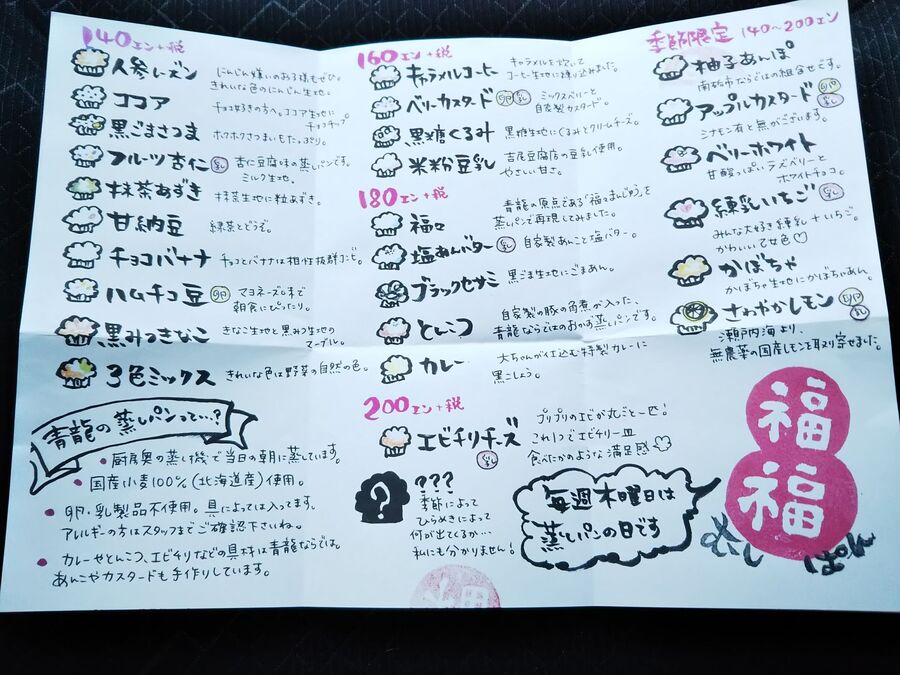 140エン+税
人参レーズン
にんじん嫌いのお子様もぜひ。
きれいな色のにんじん生地。
ココア
チョコ好きの方へ。ココア生地に
チョコチップ
黒ごまさつま
ホクホクさつまいもたっぷり。
フルーツ杏仁 乳
杏仁豆腐味の蒸しパンです。
ミルク生地。
抹茶あずき
抹茶生地に粒あずき。
甘納豆
緑茶とどうぞ。
チョコバナナ
チョコとバナナは相性抜群コンビ。
ハムチコ豆 卵
マヨネーズ味で
朝食にぴったり。
黒みつきなこ
きなこ生地と黒みつ生地の
マーブル。
3色ミックス
きれいな色は野菜の自然の色。
青龍の蒸しパンって…?
• 厨房奥の蒸し機で当日の朝に蒸しています。
• 国産小麦100%(北海道産)使用。
• 卵・乳製品不使用。具によっては入ってます。
アレルギーの方はスタッフまでご確認下さいね。
• カレーやとんこつ、エビチリなどの具材は青龍ならでは。
あんこやカスタードも手作りしています。
160エン+税
キャラメルコーヒー
キャラメルを炊いて
コーヒー生地に練り込みました。
ベリーカスタード 卵 乳
ミックスベリーと
自家製カスタード。
黒糖くるみ
黒糖生地にくるみとクリームチーズ。
米粉豆乳
吉尾豆腐店の豆乳使用。
やさしい甘さ。
180エン+税
福々
青龍の原点である「福々まんじゅう」を
蒸しパンで再現してみました。
塩あんバター 乳
自家製あんこと塩バター。
ブラックセサミ
黒ごま生地にごまあん。
とんこつ
自家製の豚の角煮が入った、
青龍ならではのおかず蒸しパンです。
カレー
大ちゃんが仕込む特製カレーに
黒こしょう。
200エン+税
エビチリチーズ 乳
プリプリのエビが丸ごと一匹!
これ1つでエビチリ一皿
食べたかのような満足感
?
???
季節によって
ひらめきによって
何が出てくるか…
私にも分かりません!
毎週木曜日は
蒸しパンの日です
季節限定 140〜200エン
柚子あんぽ
南砺市ならではの組合せです。
アップルカスタード 卵 乳
シナモン有と無がございます。
ベリーホワイト
甘酸っぱいラズベリーと
ホワイトチョコ。
練乳いちご 乳
みんな大好き練乳+いちご。
かわいい乙女色♡
かぼちゃ
かぼちゃ生地にかぼちゃあん。
さわやかレモン 卵 乳
瀬戸内海より、
無農薬の国産レモンを取り寄せました。
福
福
むし
ぱん